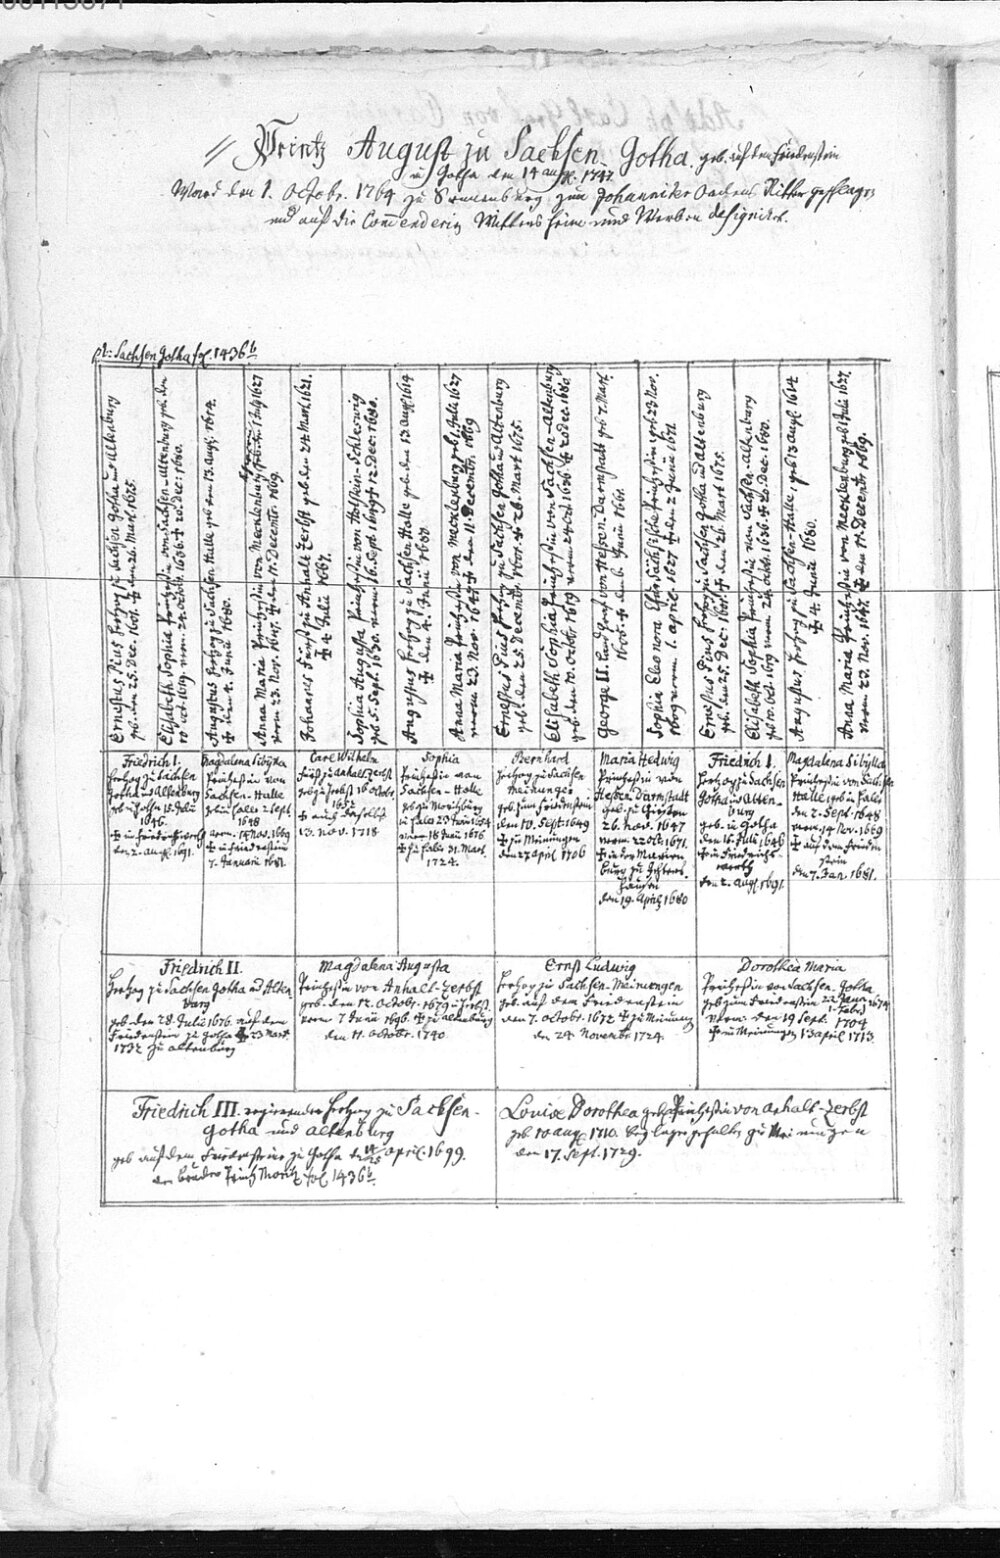 Printz August zu Sachsen. Gotha. geb. auf den Friedenstein
zu Gotha den 14 aug. 1747.
Ward den 1. Octobr. 1764 zu Sonnenburg zum Johanniter Ordens Ritter geschlagen
und auf die Commenderie Wittersheim und Werben designirt.
vt: Sachsen Gotha fol. 1436 b
Ernestus Pius Herzog zu Sachsen Gotha und Altenburg
geb. den 25. Dec. 1601. ✝ den 26. Mart 1675.
Elisabeth Sophia Princessin von Sachsen-Altenburg geb. den
10 oct. 1619. verm. 24. octobr. 1636 ✝ 20. dec: 1680.
Augustus Herzog zu Sachsen Halle geb den 13. aug. 1614.
✝ den 4. Junii 1680.
Anna Maria Princessin von Mecklenburg geb. 1 July 1627
verm 23. Nov. 1647. ✝ den 11. Decembr. 1669.
Johannes Fürst zu Anhalt Zerbst geb den 24. Mart. 1621.
✝ 4. Julii 1667.
Sophia Augusta Princessin von Holstein-Schleswig
geb. 5. Sept. 1630. verm. 16. Sept. 1649 ✝ 12. Dec: 1680.
Augustus Herzog zu Sachsen Halle geb. den 13. aug. 1614
✝ den 4. Junii 1680.
Anna Maria Princessin von Mecklenburg geb. 1. Julii 1627
verm. 23. Nov. 1647 ✝ den 11. Decembr. 1669
Ernestus Pius Herzog zu Sachsen Gotha und Altenburg
geb. den 25. Decembr. 1601. ✝ 26. Mart 1675.
Elisabeth Sophia Princessin von Sachsen-Altenburg
geb. den 10. octobr. 1619 verm 24 oct. 1636 ✝ 20 dec. 1680.
George II. Landgraf von Hessen-Darmstadt geb 7. Mart.
1605. ✝ den 6. Junii 1661.
Sophia Eleonora Chur Sächsische Princessin geb. 23 Nov.
1609 verm. 1. april. 1627 ✝ den 2 Junii 1671
Ernestus Pius Herzog zu Sachsen Gotha und Altenburg
geb. den 25. Dec. 1601. ✝ den 26. Mart 1675.
Elisabeth Sophia Princessin von Sachsen-Altenburg
geb. 10. Oct. 1619 verm. 24. octobr. 1636. ✝ 20. dec. 1680.
Augustus Herzog zu Sachsen-Halle, geb 13 aug. 1614
✝ 4. Junii 1680.
Anna Maria Princessin von Mecklenburg geb 1 Julii 1627.
verm. 23. Nov. 1647. ✝ den 11. Decembr. 1669.
Friedrich I.
Herzog zu Sachsen
Gotha und Altenburg
geb. zu Gotha 15. Julii
1646.
✝ zu Friedrichswerth
den 2. aug. 1691.
Magdalena Sibylla
Princessin von
Sachsen-Halle
geb zu Halle 2 Sept.
1648
verm. 14. Nov. 1669
✝ zu Friedenstein
7. Januarii 1681.
Carl Wilhelm
Fürst zu Anhalt Zerbst
geb. zu Zerbst 16 octobr
1652
✝ auch daselbst
13. Nov. 1718
Sophia
Princessin von
Sachsen-Halle
geb. zu Moritzburg
zu Halle 23 Junii 1654
verm. 18 Junii 1676
✝ zu Zerbst 31. Mart.
1724.
Bernhard
Herzog zu Sachsen
Meinungen
geb. zum Friedenstein
den 10. Sept. 1649
✝ zu Meinungen
den 27 april 1706
Maria Hedwig
Princessin von
Hessen-Darmstadt
geb. zu Giesen
26. Nov. 1647
verm. 22 oct. 1671.
✝ in der Marien
burg zu Ichters-
hausen
den 19. April 1680
Friedrich I.
Herzog zu Sachsen
Gotha und Alten-
burg
geb. zu Gotha
den 15. Julii 1646
✝ zu Friedrichs-
werth
den 2. aug. 1691.
Magdalena Sibylla
Princessin von Sachsen
Halle, geb. in Halle
den 2. Sept. 1648
verm. 14. Nov. 1669
✝ auf dem Frieden
stein
den 7. Jan. 1681.
Friedrich II.
Herzog zu Sachsen Gotha und Alten
burg
geb. den 28. Julii 1676. auf dem
Friedenstein zu Gotha ✝ 23 Mart.
1732 zu Altenburg
Magdalena Augusta
Princessin von Anhalt-Zerbst
geb. den 12. Octobr. 1679 zu Zerbst
verm 7 Junii 1696. ✝ zu Altenburg
den 11. Octobr. 1740.
Ernst Ludwig
Herzog zu Sachsen-Meinungen
geb. auf dem Friedenstein
den 7. Octobr. 1672 ✝ zu Meinung.
den 24. Novembr 1724.
Dorothea Maria
Princessin von Sachsen. Gotha
geb. zum Friedenstein 22 Janu. 1674
1. Febr.
verm. den 19 Sept. 1704
✝ zu Meinungen 13 april 1713.
Friedrich III. regierender Herzog zu Sachsen-
Gotha und Altenburg
geb. auf dem Friedenstein zu Gotha den 14/25 April. 1699.
der Bruder Prinz Moritz fol. 1436 b.
Louise Dorothea geb. Princessin von Anhalt-Zerbst
geb 10 aug. 1710. Beylager gehalten zu Meinungen
den 17. Sept. 1729.